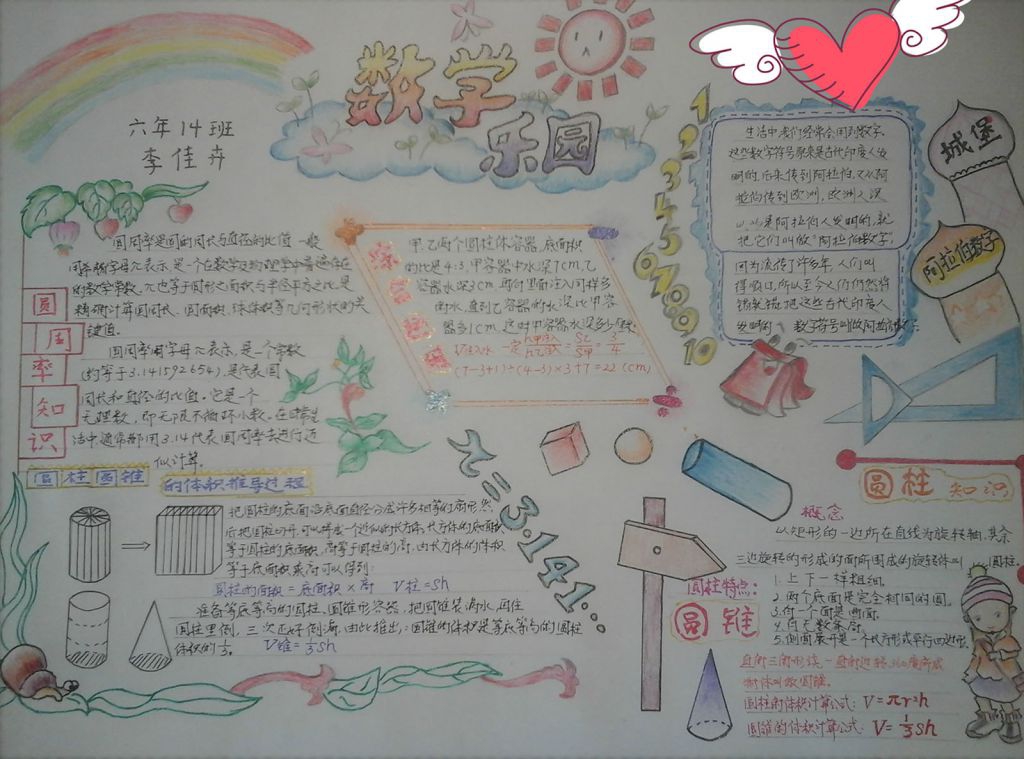 数学
乐园
六年14班
李佳卉
圆周率是圆的周长与直径的比值一般
用希腊字母π表示,是一个在数学及物理学中普遍存在
的数学常数,π也等于圆形之面积与半径平方之比,是
精确计算圆周长、圆面积、球体积等几何形状的关
键值。
圆周率用字母π表示,是一个常数
(约等于3.141592654),是代表圆
周长和直径的比值。它是一个
无理数,即无限不循环小数。在日常生
活中,通常都用3.14代表圆周率去进行近
似计算。
圆
周
率
知
识
甲乙两个圆柱体容器,底面积
的比是4:3,甲容器中水深7cm,乙
容器水深3cm,再往里面注入同样多
的水,直到乙容器的水深比甲容
器多1cm,这时甲容器水深多少厘米
(7-3+1)÷(4-3)×3+7=22 (cm)
1 2 3 4 5 6 7 8 9 10
生活中我们经常会用到数字,
这些数字符号原来是古代印度人发
明的,后来传到阿拉伯,又从阿
拉伯传到欧洲,欧洲人误
以为是阿拉伯人发明的,就
把它们叫做"阿拉伯数字
因为流传了许多年,人们叫
得顺口,所以至今人们仍然将
错就错,把这些古代印度人
发明的 数字符号叫做阿拉伯数字
城堡
阿拉伯数字
圆柱圆锥 的体积推导过程
把圆柱的底面沿底面直径分成许多相等的扇形,然
后把圆柱切开,可以拼成一个近似的长方体,长方体的底面积
等于圆柱的底面积,高等于圆柱的高,由长方体的体积
等于底面积乘高可以得到:
圆柱的面积=底面积×高 V柱=Sh
准备等底等高的圆柱、圆锥形容器,把圆锥装满水,再往
圆柱里倒,三次正好倒满,由此推出:圆锥的体积是等底等高的圆柱
体积的⅓ V锥=⅓Sh
π=3.141…
圆柱知识
概念
以矩形的一边所在直线为旋转轴,其余
三边旋转的形成的面所围成的旋转体叫 圆柱.
圆柱特点:
1.上下一样粗细.
2.两个底面是完全相同的圆.
3.有一个面是曲面.
4.有无数条高.
5.侧面展开是一个长方形或平行四边形
圆锥
圆柱的体积计算公式: V=πr²h
圆锥的体积计算公式: V=⅓sh